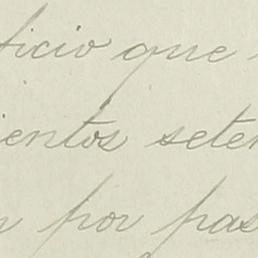 ficio que
ientos seten
por pas